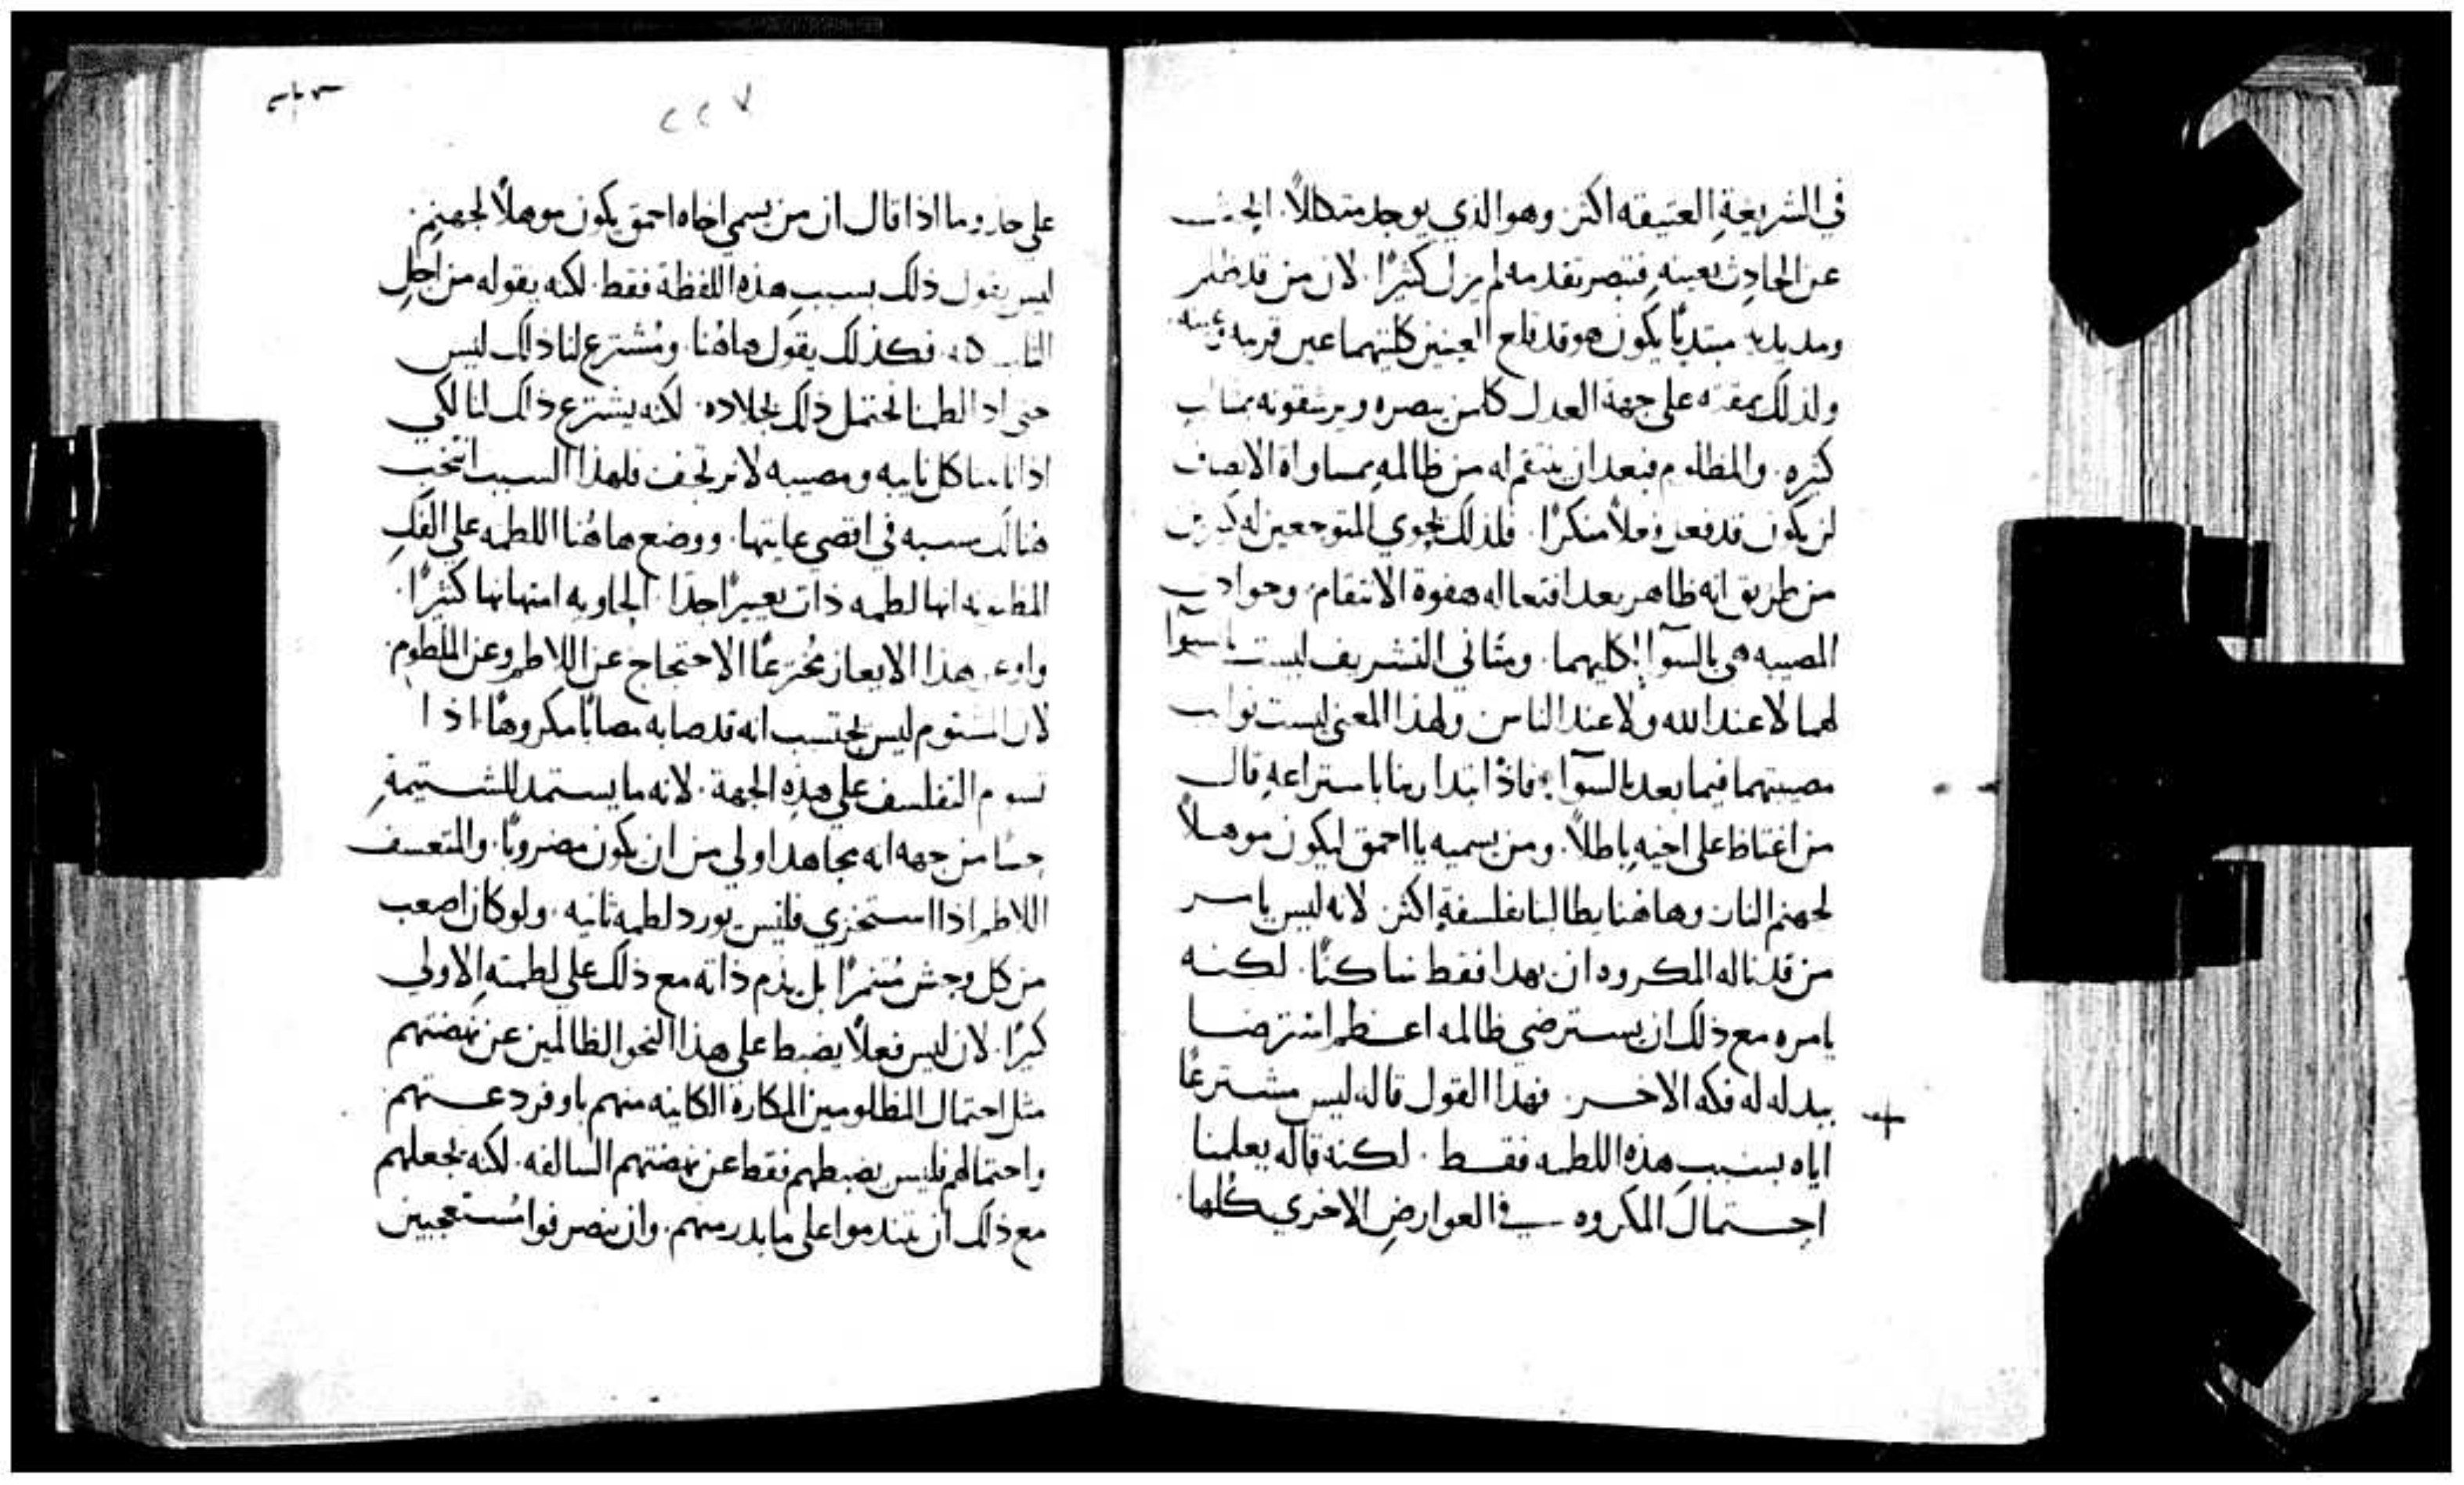 في الشريعةِ العتيقه اكثر وهو الذي يوجد متكاملاً. ابحث
عن الحادِث بعينهِ فتبصر تقدمه لم يزل كثيرًا. لان من قد ظلم
ومد يديه مبتديًا يكون هو قد قلع العينين كلتيهما عين قريبه وعينه.
ولذلك يمقته على جهة العدل كلمن يبصره ويرشقونه بمثالب
كثيره. والمظلوم فبعد ان ينتقم له من ظالمهِ بمساواة الانصاف
لن يكون قد فعل فعلاً منكرًا. فلذلك يحوي المتوجعين له كثيرين
من طريق انه ظاهر بعد افتعاله هفوة الانتقام. وحوادث
المصيبه هي بالسوآ لكليهما. ومثاني التشريف ليست بالسوآ
لهما لا عند الله ولا عند الناس ولهذا المعنى ليست نوايب
مصيبتهما فيما بعد بالسوآ. فاذ ابتدا ربنا باستراعهِ قال
من اغتاظ على اخيهِ باطلاً. ومن يسميه يا احمق ليكون موهلاً
لجهنم النار. وهاهنا يطالبنا بفلسفةٍ اكثر. لانه ليس يامر
من قد ناله المكروه ان يهدا فقط ساكتًا. لكنه
يامره مع ذلك ان يسترضي ظالمه اعظم استرضا
ببدله له فكه الاخر. فهذا القول قاله ليس مشترعًا
اياه بسبب هذه اللطمه فقط. لكنه قاله يعلمنا
احتمال المكروه في العوارضِ الاخرى كلها.
٢٢٧
على حذو ما اذا قال ان من يسمي اخاه احمق يكون موهلاً لجهنم.
ليس يقول ذلك بسبب هذه اللفظة فقط. لكنه يقوله من اجلِ
فكذلك يقول هاهُنا ومُشترع لنا ذلك ليس
حتى اذا لطمنا نحتمل ذلك بجلاده. لكنه يشترع ذلك لنا لكي
اذا نابنا كل نايبه ومصيبه لا نرتجف فلهذا السبب انتخب
هنالك سببه في اقصى غايتها. ووضع هاهُنا اللطمه على الفكِ
المظنونه انها لطمه ذات تعييرًا جدًا. الحاويه امتهانها كثيرًا.
واوعز هذا الايعاز مُخترعًا الاحتجاج عن اللاطم وعن الملطوم.
لان المشتوم ليس يحتسب انه قد صابه مصابًا مكروهًا. اذا
التفلسف على هذهِ الجهة. لانه ما يستمد للشتيمةِ
حسًا من جهه انه مجاهد اولى من ان يكون مضروبًا. والمتعسف
اللاطم اذا استخزي فليس يورد لطمه ثانيه. ولو كان اصعب
من كل وحش مُتنمرًا بل يذم ذاته مع ذلك على لطمتهِ الاولى
كثيرًا. لان ليس فعلاً يضبط على هذا النحو الظالمين عن نهضتهم
مثل احتمال المظلومين المكارة الكاينه منهم باوفر دعتهم
واحتمالهم فليس يضبطهم فقط عن نهضتهم السالفه. لكنه يجعلهم
مع ذلك ان يتندموا على ما بدر منهم. وان ينصرفوا مُستعجبين